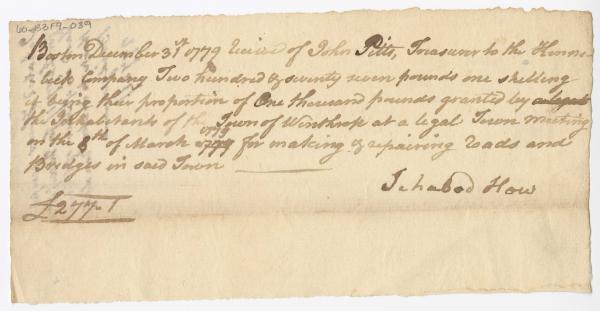 60-B3F9-039
Boston December 31st 1779 Receivd of John Pitts, Treasurer to the Kenne-
beck Company Two hundred & seventy seven pounds one shilling
it being their proportion of One thousand pounds granted by
the Inhabitants of the Town of Winthrop at a legal Town meeting
1779
on the 8th of March for making & repairing roads and
Bridges in said Town
Ichabod How
£277-1